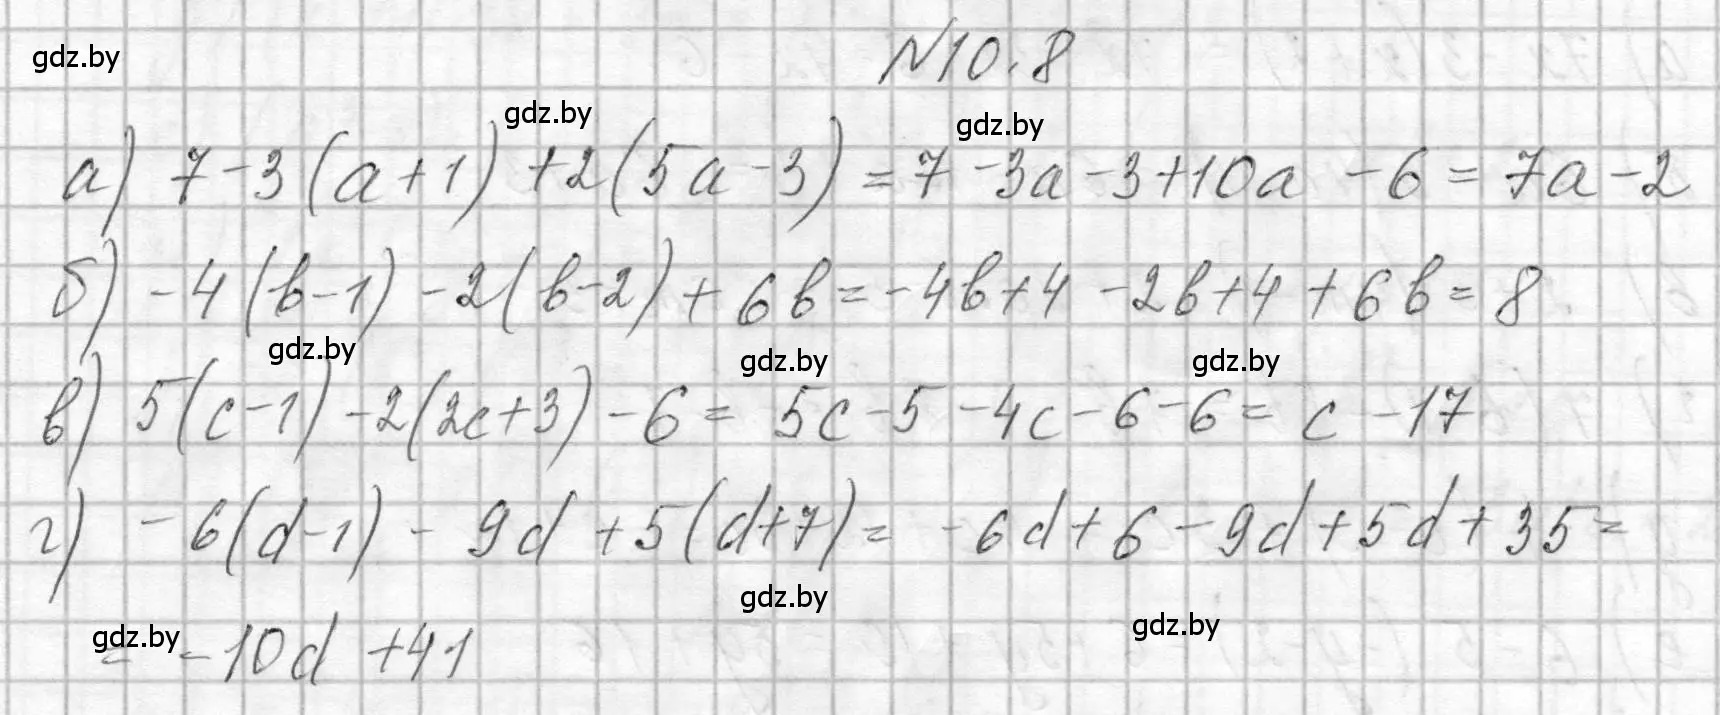 gdz.by
№10.8
gdz.by gdz.by
а) 7-3(a+1)+2(5a-3)=7-3a-3+10a-6=7a-2
б) -4(b-1)-2(b-2)+6b=-4b+4-2b+4+6b=8
gdz.by gdz.by gdz.by
в) 5(c-1)-2(2c+3)-6=5c-5-4c-6-6=c-17
г) -6(d-1)-9d+5(d+7)=-6d+6-9d+5d+35=
gdz.by gdz.by gdz.by
=-10d+41